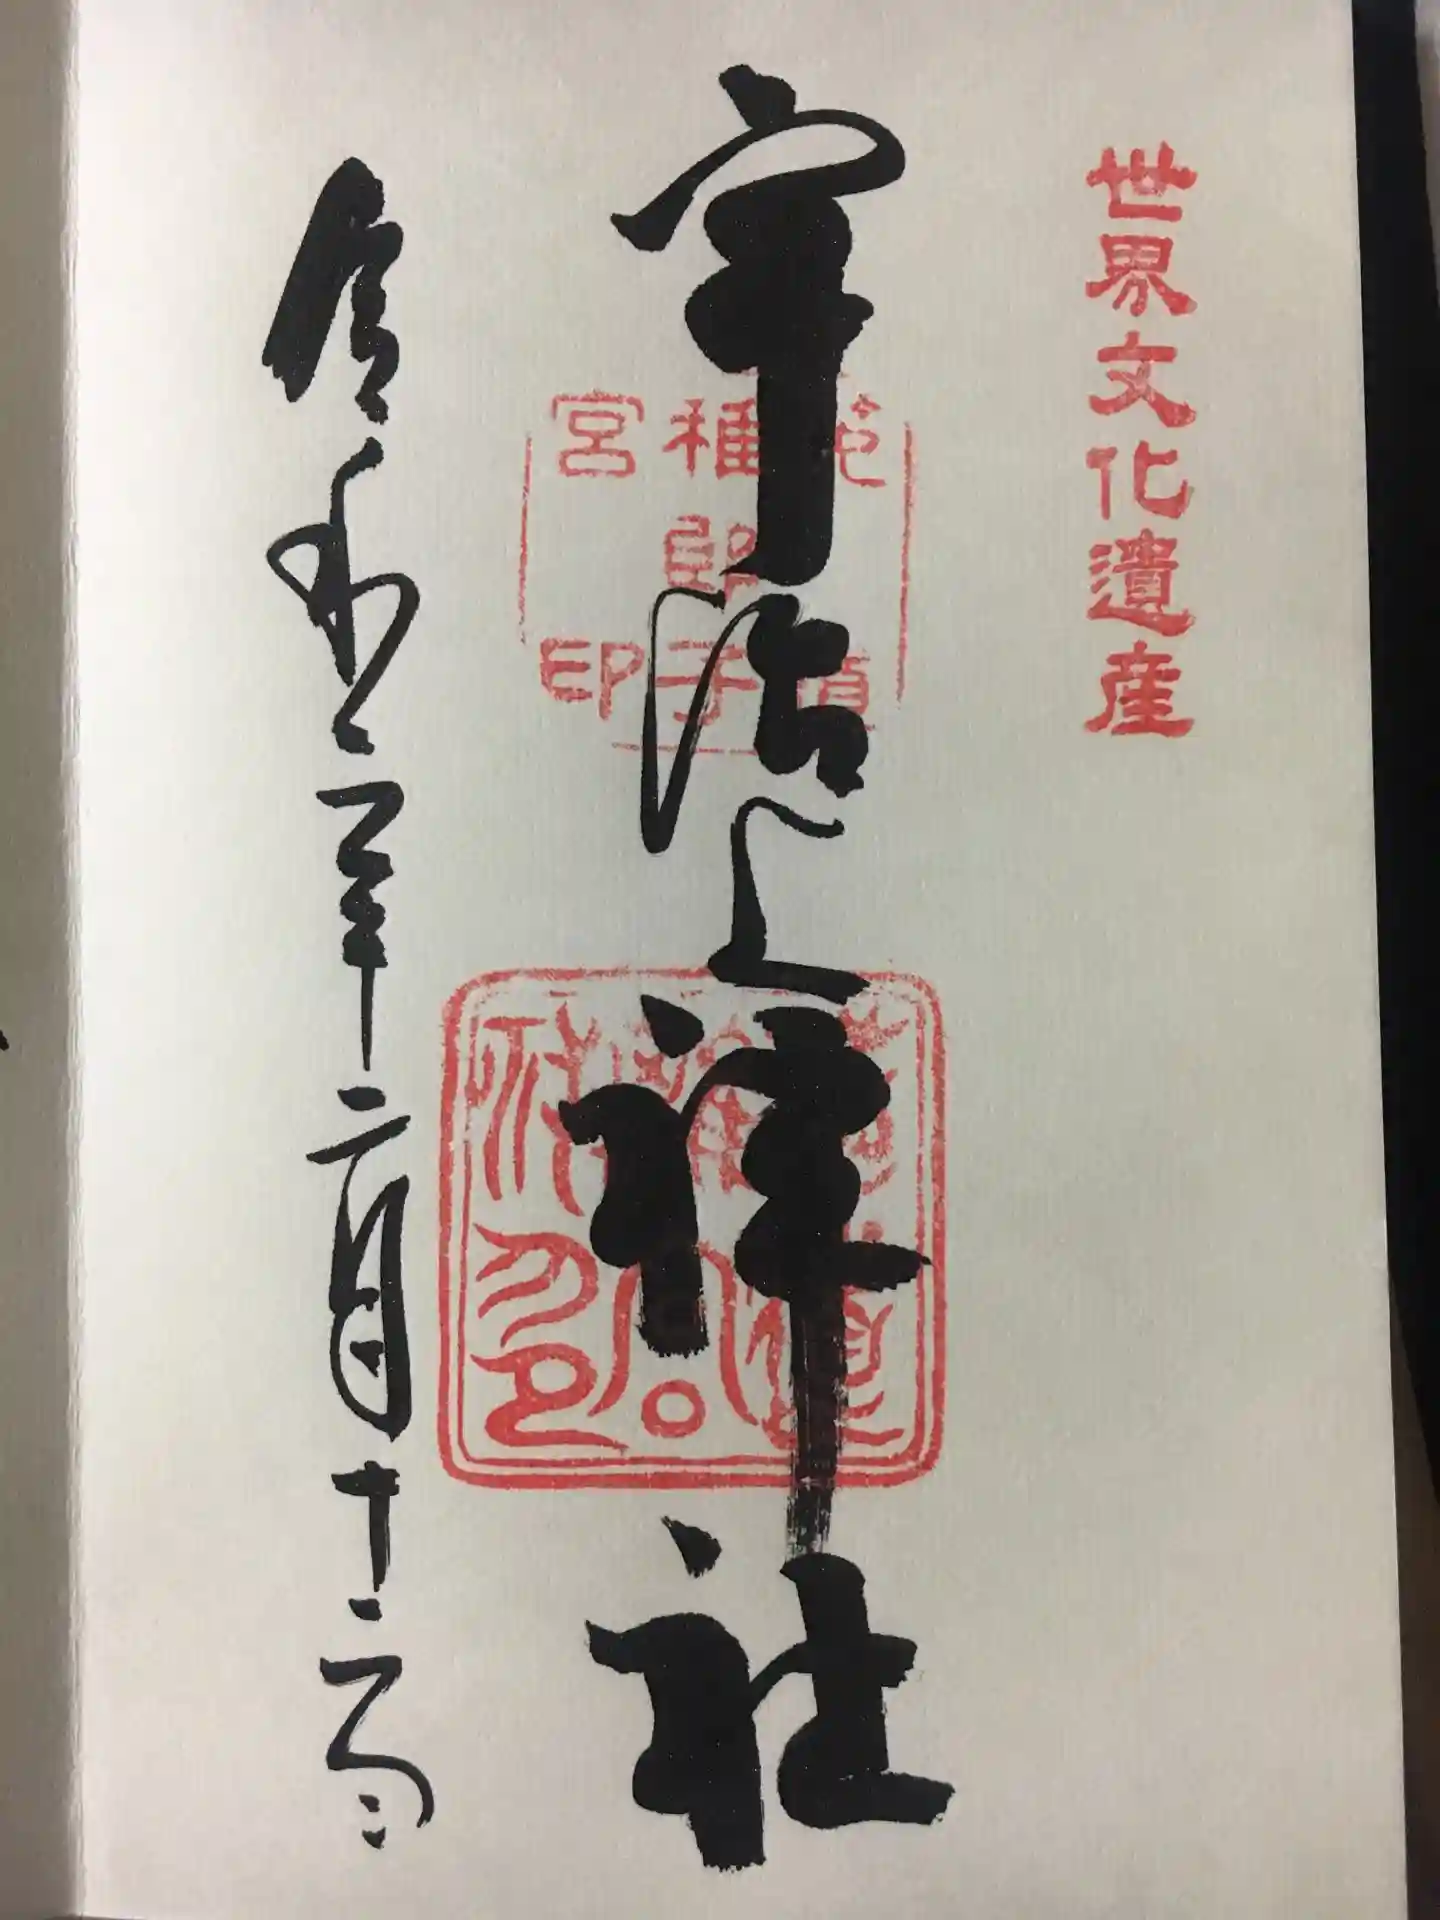 世界文化遺産
宇治上神社
菟道
稚郎子
宮印
令和二年二月十二日